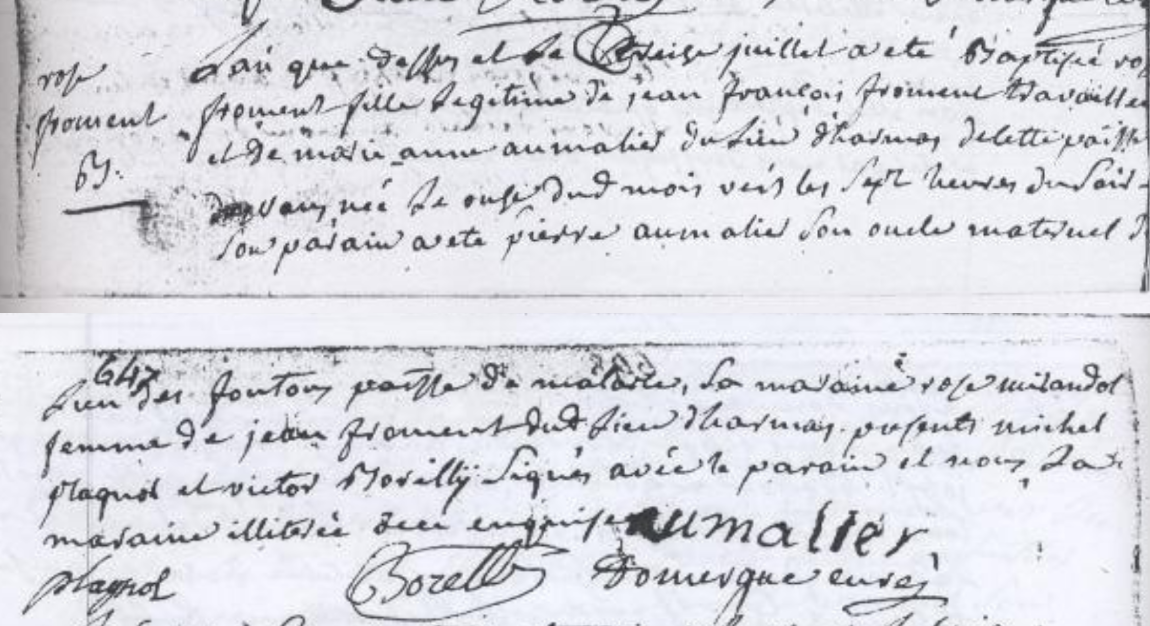 rose
froment
B.
L'an que dessus et le treise juillet a eté Baptisée ro
froment fille legitime de jean françois froment travaille
et de marie anne aumalier du lieu d'harmas de cette paisse
de vans, née le onse dud mois vers les sept heures du soir
son parain a eté pierre aumalier son oncle maternel d
647
Lieu des foutons paisse de malarce, La maraine rose mirandol
femme de jean froment dud lieu d'harmas. presents michel
plagnol et victor Borelly signés avec le parain et nous La
maraine illiterée de ce enquise aumalier
plagnol Borelly Domergue curé